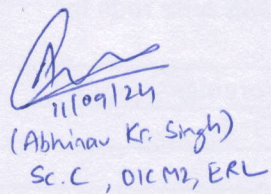 11/09/24
(Abhinav Kr. Singh)
Sc. C , OIC M2, ERL